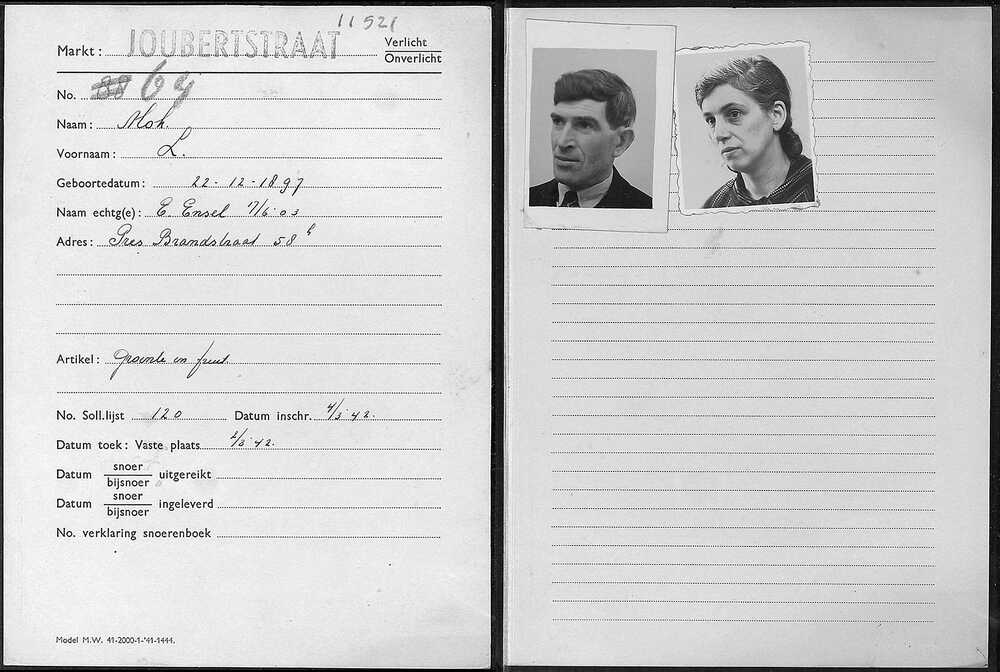 11521
Markt: JOUBERTSTRAAT Verlicht
Onverlicht
No. 88 69
Naam: Mok.
Voornaam: L.
Geboortedatum: 22-12-1897
Naam echtg(e): E. Ensel 7/6-03
Adres: Pres Brandstraat 58 h
Artikel: groente en fruit
No. Soll.lijst 120 Datum inschr. 4/3 42.
Datum toek: Vaste plaats 2/3 42.
Datum snoer uitgereikt
bijsnoer
Datum snoer ingeleverd
bijsnoer
No. verklaring snoerenboek
Model M.W. 41-2000-1-'41-1444.